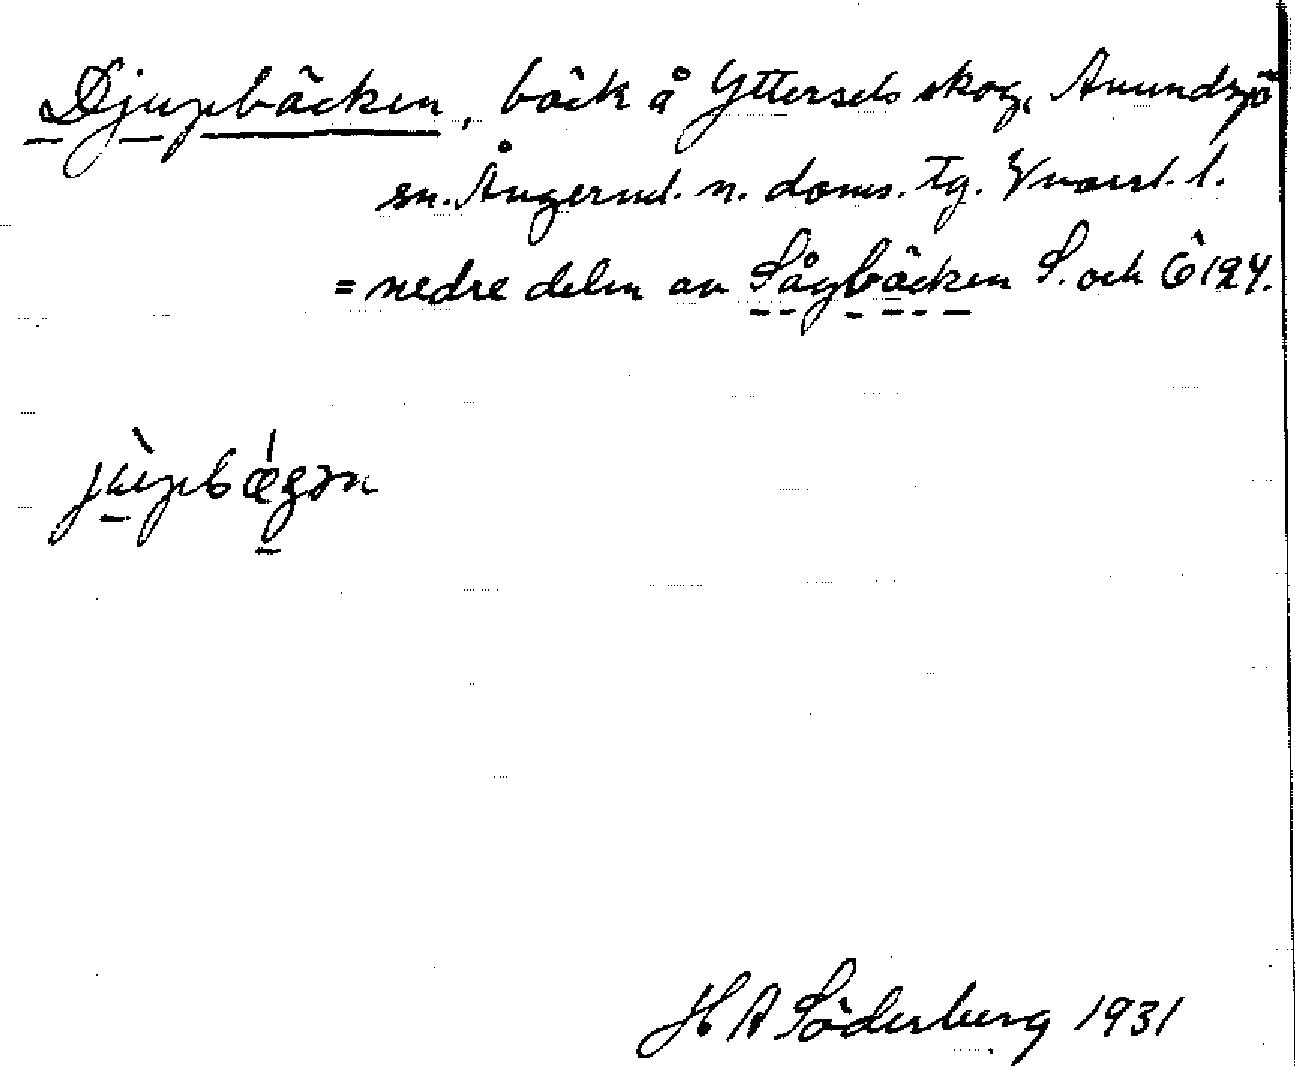 Djupbäcken, bäck å Yttersels skog, Anundsjö
sn. Ångerml. n. doms. tg. Vnorrl. l.
= nedre delen av Sågbäcken S. och Ö 124.
jùpbǽgən
H A Söderberg 1931